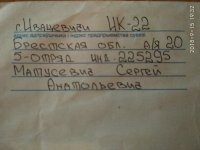 г. Ивацевичи ИК-22
Брестская обл. а/я 20
5-отряд инд. 225295
Матусевич Сергей
Анатольевич